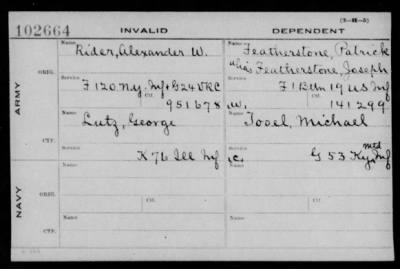 (3-III-5)
102664
INVALID
DEPENDENT
ARMY
ORIG.
Name
Rider, Alexander W.
Service
F 120 N.Y. Inf + G 24 VRC
Ctf.
951678
Name
Featherstone, Patrick
alias Featherstone, Joseph
Service
F 1 Btn 19 U S Inf
Ctf.
W. 141299
CTF.
Name
Lutz, George
Service
K 76 Ill Inf
Name
Tooel, Michael
Service
C. G 53 Ky Mtd Inf
NAVY
ORIG.
Name
Service
Ctf.
Name
Service
Ctf.
CTF.
Name
Name